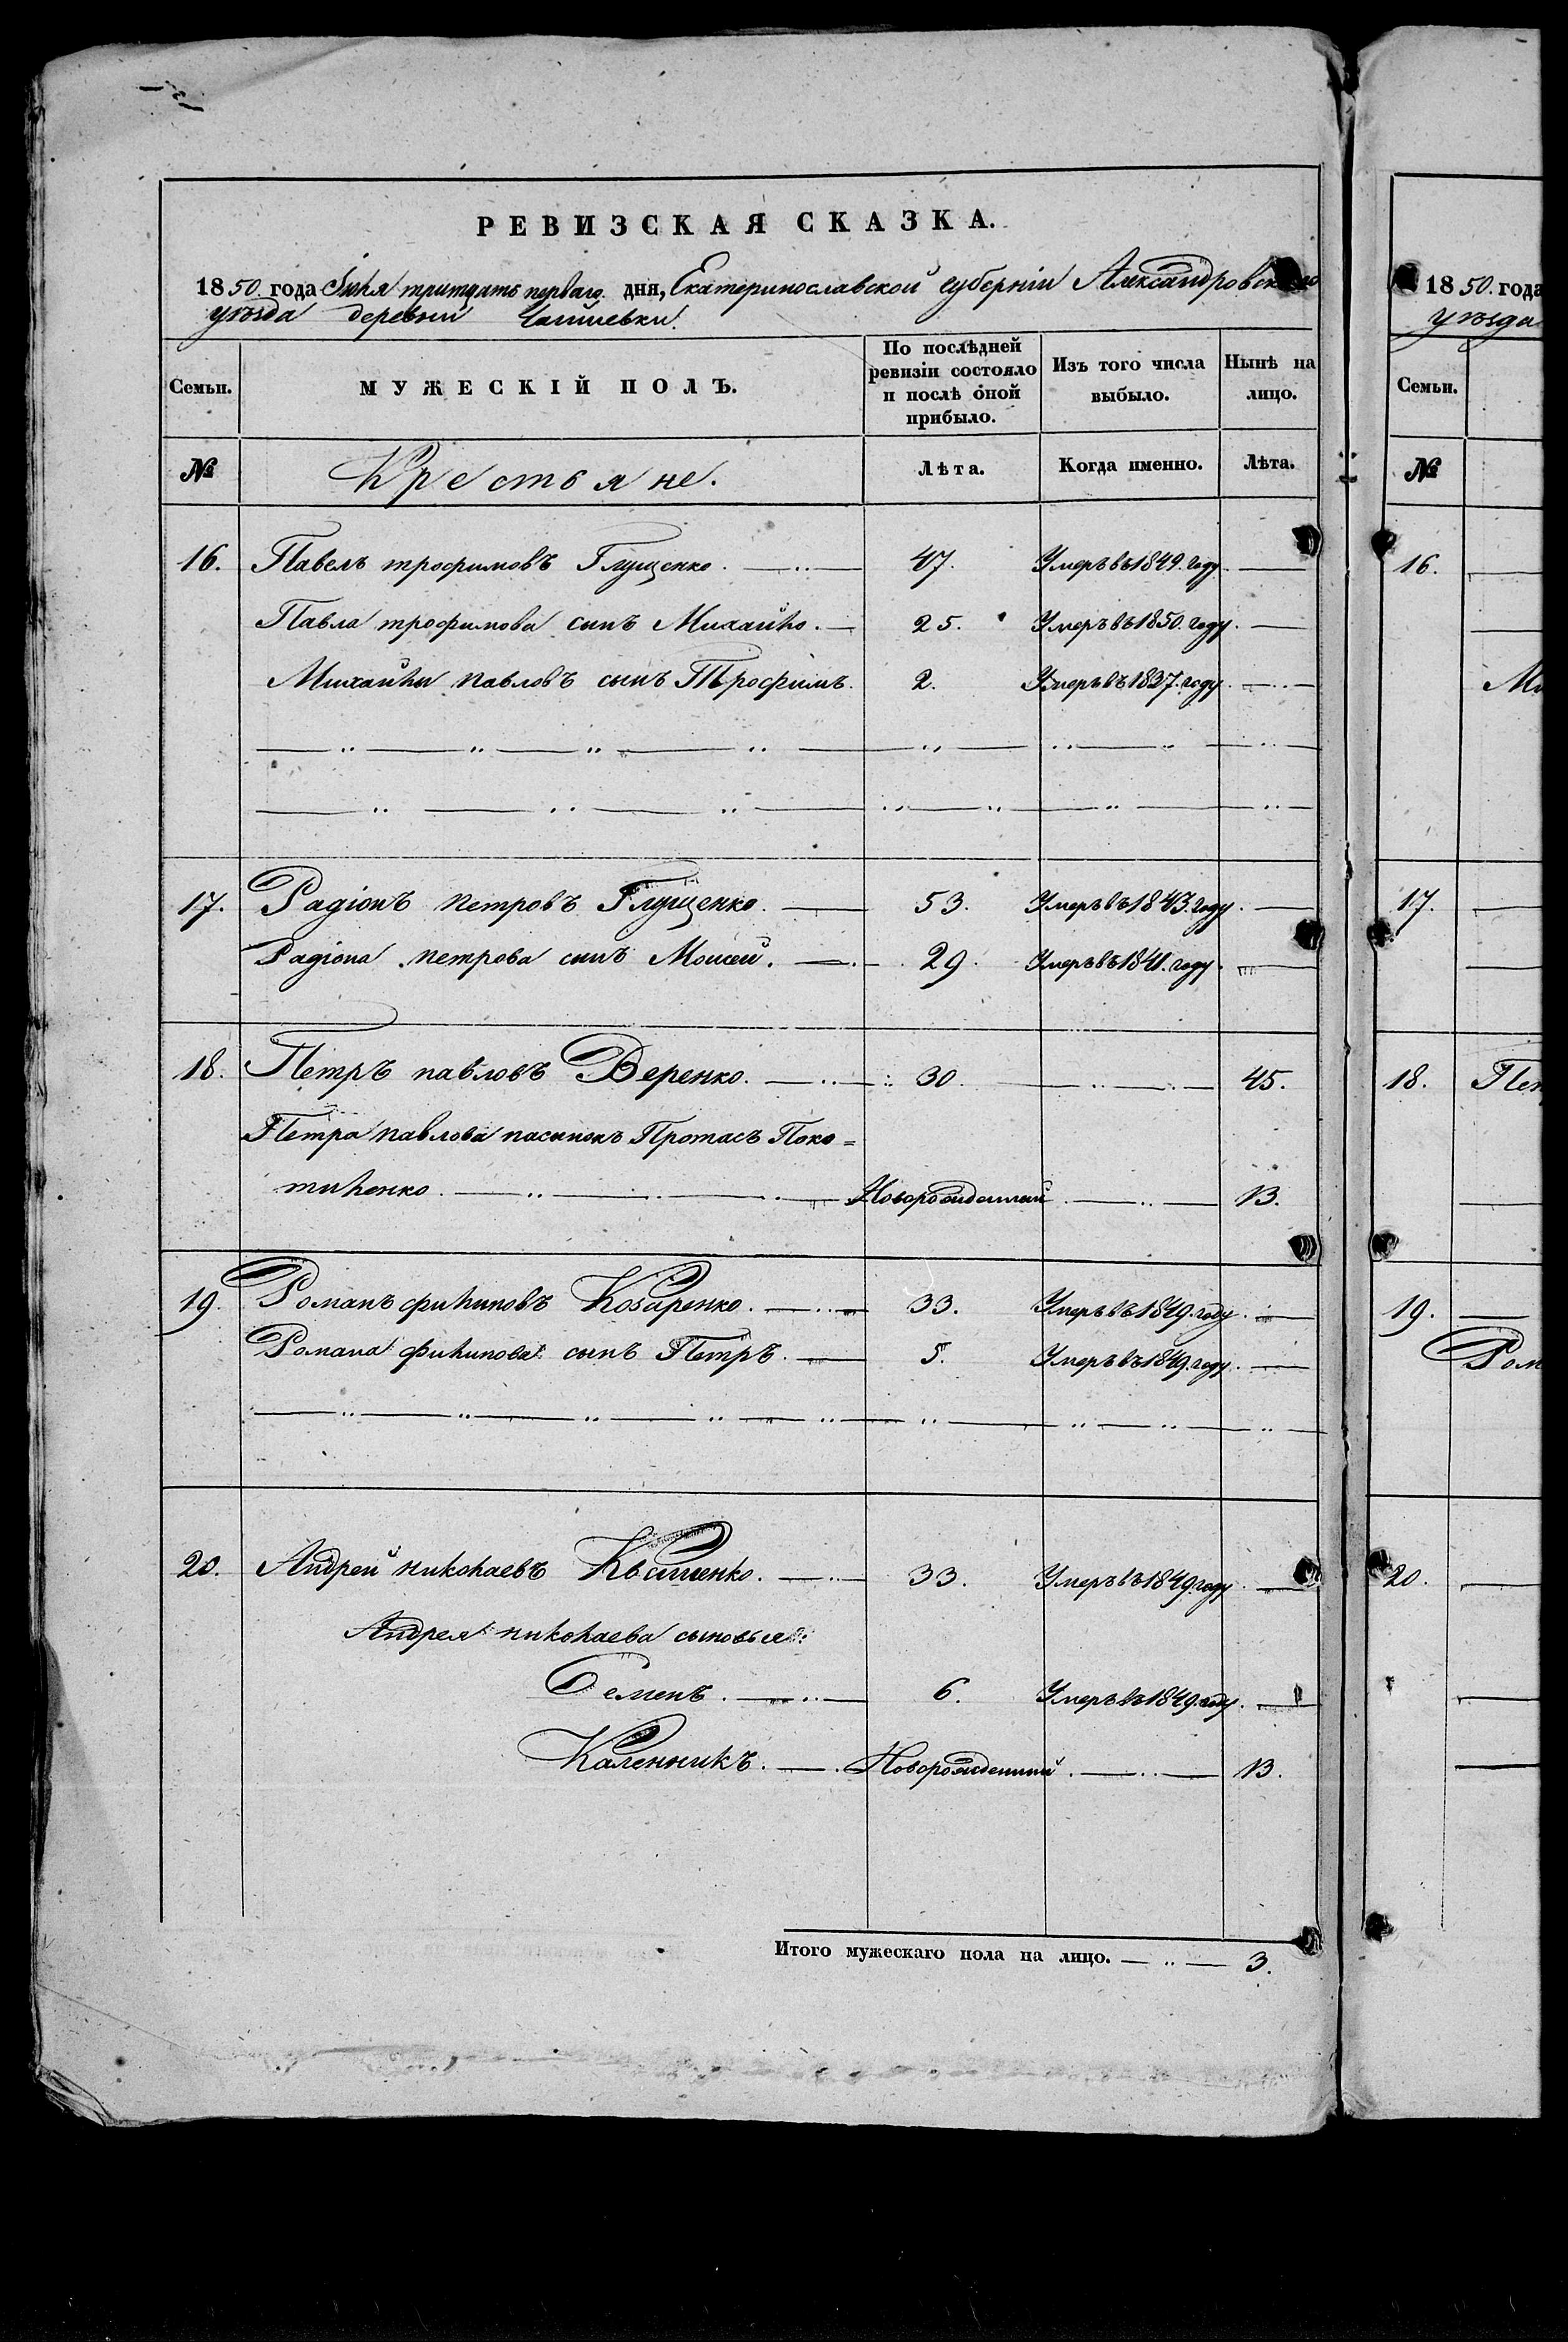 РЕВИЗСКАЯ СКАЗКА.
1850. года Іюля тритцать перваго. дня, Екатеринославской губерніи Александровскаго
уѣзда деревни
Семьи. МУЖЕСКІЙ ПОЛЪ. По послѣдней ревизіи состояло и послѣ оной прибыло. Изъ того числа выбыло. Нынѣ на лицо.
№ Крестьяне. Лѣта. Когда именно. Лѣта.
16. Павелъ трофимовъ Глущенко. 47. Умеръ въ 1849. году.
Павла трофимова сынъ Михайло. 25. Умеръ въ 1850. году.
Михайлы павловъ сынъ Трофимъ. 2. Умеръ въ 1837. году.
17. Радіонъ петровъ Глущенко. 53. Умеръ въ 1843. году.
Радіона петрова сынъ Моисей. 29. Умеръ въ 1841. году.
18. Петръ павловъ Веренко. 30. 45.
Петра павлова пасынокъ Протасъ Поко=
тиленко. Новорожденный. 13.
19. Романъ филиповъ Козаренко. 33. Умеръ въ 1849. году.
Романа филипова сынъ Петръ. 5. Умеръ въ 1849. году.
20. Андрей николаевъ Квашенко. 33. Умеръ въ 1849. году.
Андрея николаева сыновья:
Семенъ. 6. Умеръ въ 1849. году.
Каленникъ. Новорожденный. 13.
Итого мужескаго пола на лицо. 3.
1850. года
уѣзда
Семьи.
№
16.
Ми
17.
18. Пет
19.
Ром
20.